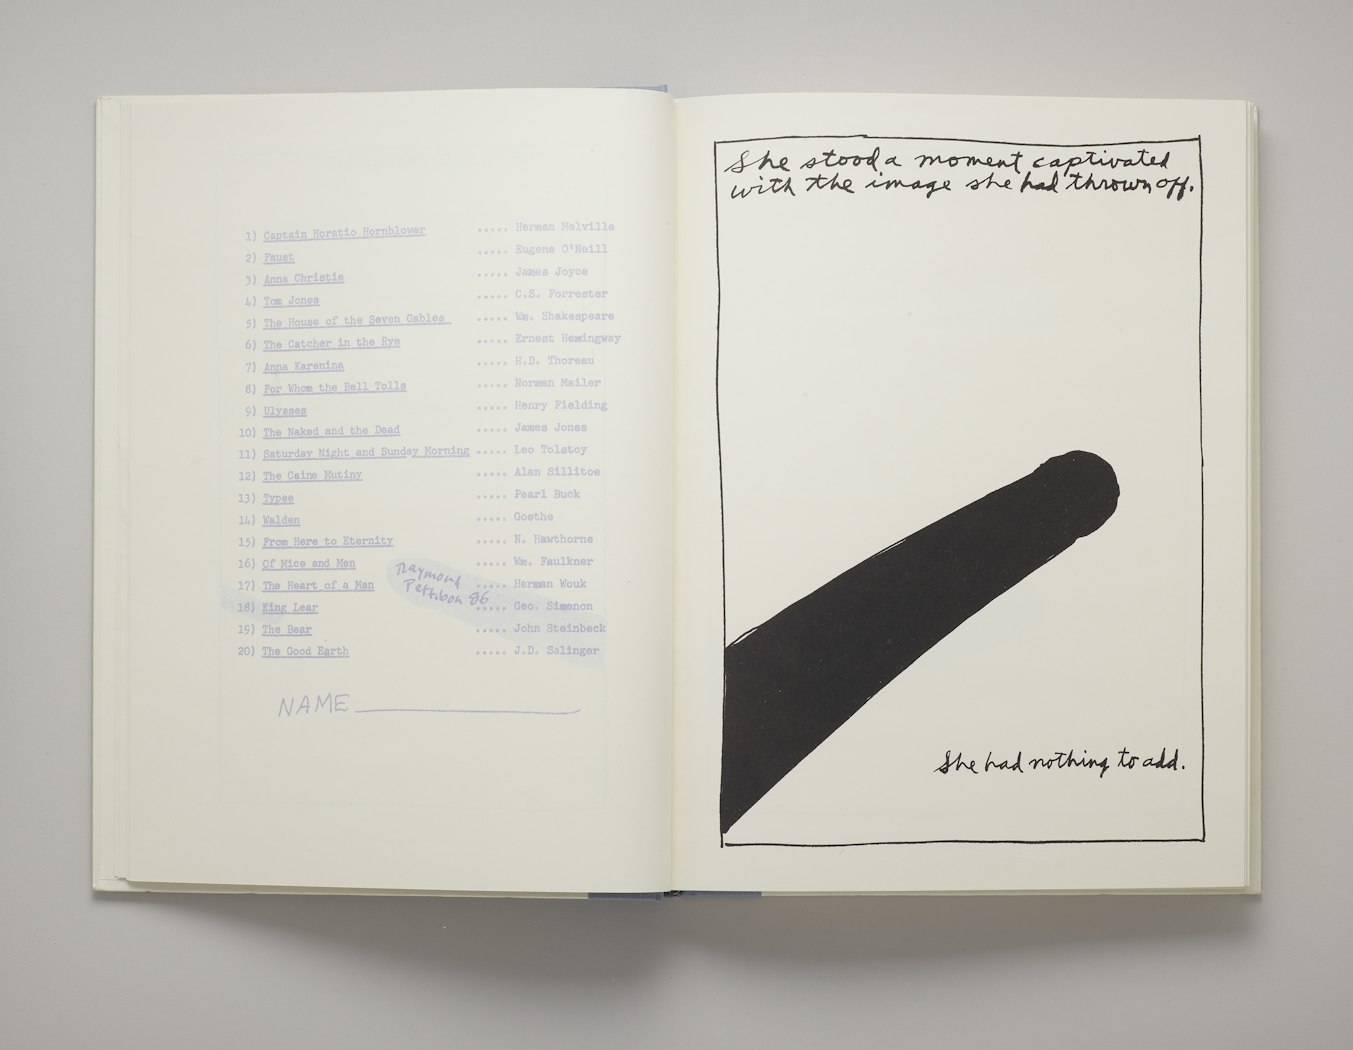 1) Captain Horatio Hornblower ..... Herman Melville
2) Faust ..... Eugene O'Neill
3) Anna Christie ..... James Joyce
4) Tom Jones ..... C.S. Forrester
5) The House of the Seven Gables ..... Wm. Shakespeare
6) The Catcher in the Rye ..... Ernest Hemingway
7) Anna Karenina ..... H.D. Thoreau
8) For Whom the Bell Tolls ..... Norman Mailer
9) Ulysses ..... Henry Fielding
10) The Naked and the Dead ..... James Jones
11) Saturday Night and Sunday Morning ..... Leo Tolstoy
12) The Caine Mutiny ..... Alan Sillitoe
13) Typee ..... Pearl Buck
14) Walden ..... Goethe
15) From Here to Eternity ..... N. Hawthorne
16) Of Mice and Men ..... Wm. Faulkner
17) The Heart of a Man ..... Herman Wouk
18) King Lear ..... Geo. Simenon
19) The Bear ..... John Steinbeck
20) The Good Earth ..... J.D. Salinger
Raymond
Pettibon 86
NAME
She stood a moment captivated
with the image she had thrown off.
She had nothing to add.